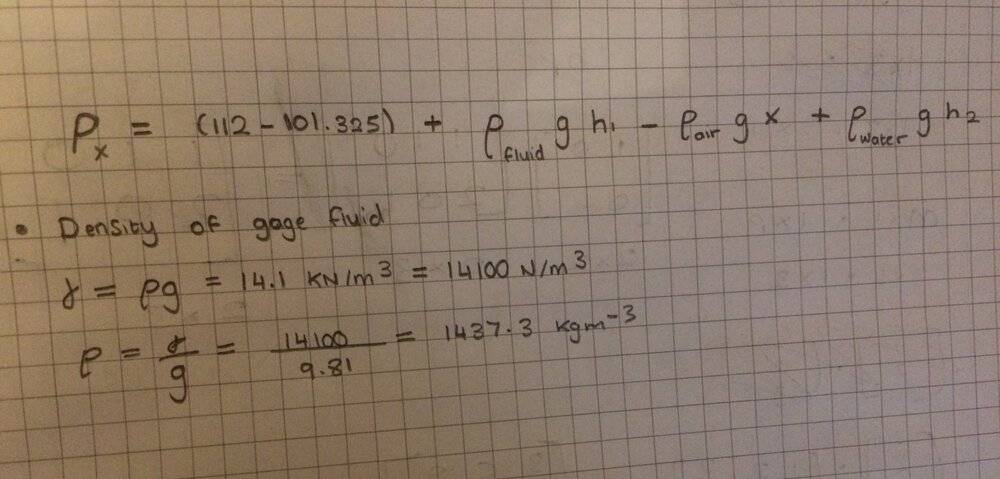 Pₓ = (112 - 101.325) + ρ_fluid g h₁ - ρ_air g x + ρ_water g h₂
• Density of gage fluid
γ = ρg = 14.1 KN/m³ = 14100 N/m³
ρ = γ/g = 14100/9.81 = 1437.3 kgm⁻³